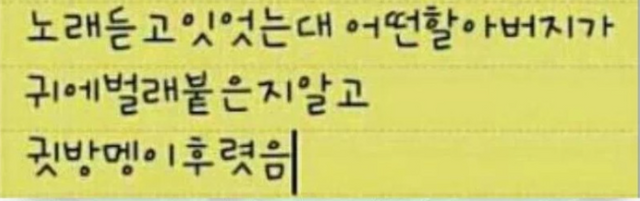 노래듣고잇엇는대 어떤할아버지가
귀에벌래붙은지알고
귓방멩이후렷음